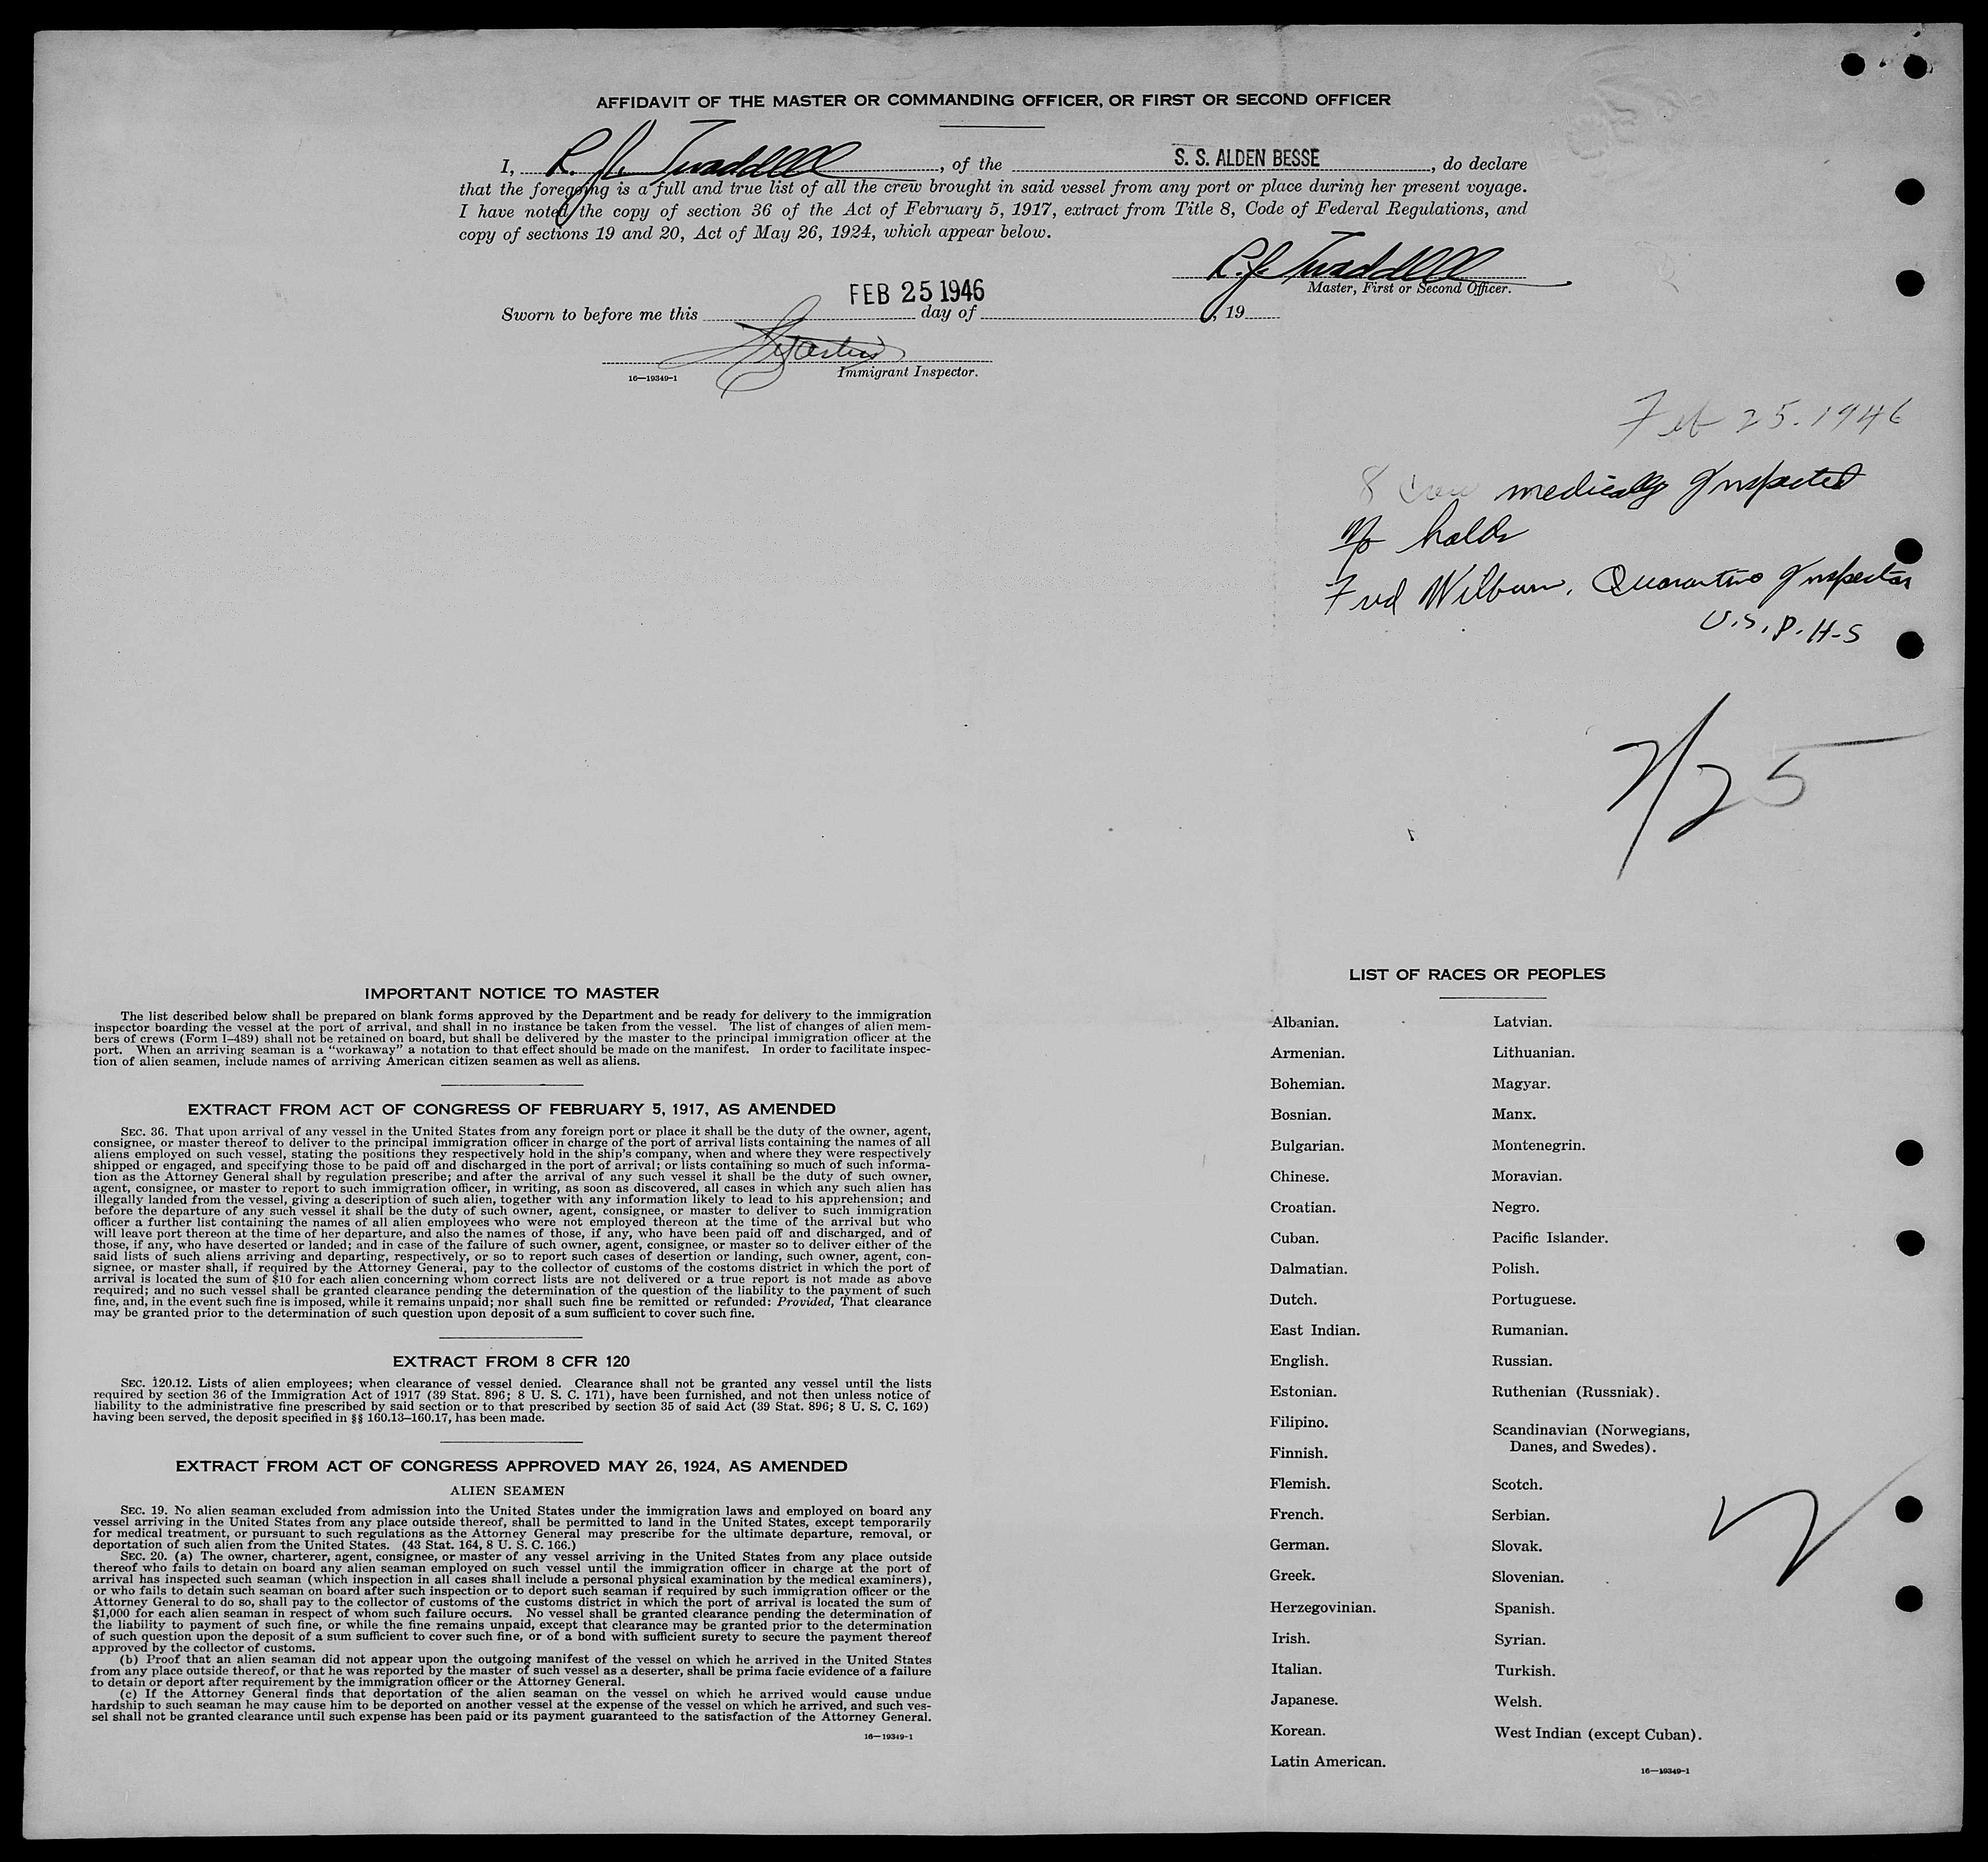 AFFIDAVIT OF THE MASTER OR COMMANDING OFFICER, OR FIRST OR SECOND OFFICER
I, R. J. Twaddell, of the S. S. ALDEN BESSE, do declare
that the foregoing is a full and true list of all the crew brought in said vessel from any port or place during her present voyage.
I have noted the copy of section 36 of the Act of February 5, 1917, extract from Title 8, Code of Federal Regulations, and
copy of sections 19 and 20, Act of May 26, 1924, which appear below.
R. J. Twaddell
Master, First or Second Officer.
FEB 25 1946
Sworn to before me this day of , 19
Immigrant Inspector.
16—19349-1
Feb 25. 1946
8 crew medically Inspected
No holds
Fred Wilburn, Quarantine Inspector
U.S.P.H-S
2/25
IMPORTANT NOTICE TO MASTER
The list described below shall be prepared on blank forms approved by the Department and be ready for delivery to the immigration
inspector boarding the vessel at the port of arrival, and shall in no instance be taken from the vessel. The list of changes of alien mem-
bers of crews (Form I-489) shall not be retained on board, but shall be delivered by the master to the principal immigration officer at the
port. When an arriving seaman is a "workaway" a notation to that effect should be made on the manifest. In order to facilitate inspec-
tion of alien seamen, include names of arriving American citizen seamen as well as aliens.
EXTRACT FROM ACT OF CONGRESS OF FEBRUARY 5, 1917, AS AMENDED
SEC. 36. That upon arrival of any vessel in the United States from any foreign port or place it shall be the duty of the owner, agent,
consignee, or master thereof to deliver to the principal immigration officer in charge of the port of arrival lists containing the names of all
aliens employed on such vessel, stating the positions they respectively hold in the ship's company, when and where they were respectively
shipped or engaged, and specifying those to be paid off and discharged in the port of arrival; or lists containing so much of such informa-
tion as the Attorney General shall by regulation prescribe; and after the arrival of any such vessel it shall be the duty of such owner,
agent, consignee, or master to report to such immigration officer, in writing, as soon as discovered, all cases in which any such alien has
illegally landed from the vessel, giving a description of such alien, together with any information likely to lead to his apprehension; and
before the departure of any such vessel it shall be the duty of such owner, agent, consignee, or master to deliver to such immigration
officer a further list containing the names of all alien employees who were not employed thereon at the time of the arrival but who
will leave port thereon at the time of her departure, and also the names of those, if any, who have been paid off and discharged, and of
those, if any, who have deserted or landed; and in case of the failure of such owner, agent, consignee, or master so to deliver either of the
said lists of such aliens arriving and departing, respectively, or so to report such cases of desertion or landing, such owner, agent, con-
signee, or master shall, if required by the Attorney General, pay to the collector of customs of the costoms district in which the port of
arrival is located the sum of $10 for each alien concerning whom correct lists are not delivered or a true report is not made as above
required; and no such vessel shall be granted clearance pending the determination of the question of the liability to the payment of such
fine, and, in the event such fine is imposed, while it remains unpaid; nor shall such fine be remitted or refunded: Provided, That clearance
may be granted prior to the determination of such question upon deposit of a sum sufficient to cover such fine.
EXTRACT FROM 8 CFR 120
SEC. 120.12. Lists of alien employees; when clearance of vessel denied. Clearance shall not be granted any vessel until the lists
required by section 36 of the Immigration Act of 1917 (39 Stat. 896; 8 U. S. C. 171), have been furnished, and not then unless notice of
liability to the administrative fine prescribed by said section or to that prescribed by section 35 of said Act (39 Stat. 896; 8 U. S. C. 169)
having been served, the deposit specified in §§ 160.13–160.17, has been made.
EXTRACT FROM ACT OF CONGRESS APPROVED MAY 26, 1924, AS AMENDED
ALIEN SEAMEN
SEC. 19. No alien seaman excluded from admission into the United States under the immigration laws and employed on board any
vessel arriving in the United States from any place outside thereof, shall be permitted to land in the United States, except temporarily
for medical treatment, or pursuant to such regulations as the Attorney General may prescribe for the ultimate departure, removal, or
deportation of such alien from the United States. (43 Stat. 164, 8 U. S. C. 166.)
SEC. 20. (a) The owner, charterer, agent, consignee, or master of any vessel arriving in the United States from any place outside
thereof who fails to detain on board any alien seaman employed on such vessel until the immigration officer in charge at the port of
arrival has inspected such seaman (which inspection in all cases shall include a personal physical examination by the medical examiners),
or who fails to detain such seaman on board after such inspection or to deport such seaman if required by such immigration officer or the
Attorney General to do so, shall pay to the collector of customs of the customs district in which the port of arrival is located the sum of
$1,000 for each alien seaman in respect of whom such failure occurs. No vessel shall be granted clearance pending the determination of
the liability to payment of such fine, or while the fine remains unpaid, except that clearance may be granted prior to the determination
of such question upon the deposit of a sum sufficient to cover such fine, or of a bond with sufficient surety to secure the payment thereof
approved by the collector of customs.
(b) Proof that an alien seaman did not appear upon the outgoing manifest of the vessel on which he arrived in the United States
from any place outside thereof, or that he was reported by the master of such vessel as a deserter, shall be prima facie evidence of a failure
to detain or deport after requirement by the immigration officer or the Attorney General.
(c) If the Attorney General finds that deportation of the alien seaman on the vessel on which he arrived would cause undue
hardship to such seaman he may cause him to be deported on another vessel at the expense of the vessel on which he arrived, and such ves-
sel shall not be granted clearance until such expense has been paid or its payment guaranteed to the satisfaction of the Attorney General.
16—19349-1
LIST OF RACES OR PEOPLES
Albanian.
Armenian.
Bohemian.
Bosnian.
Bulgarian.
Chinese.
Croatian.
Cuban.
Dalmatian.
Dutch.
East Indian.
English.
Estonian.
Filipino.
Finnish.
Flemish.
French.
German.
Greek.
Herzegovinian.
Irish.
Italian.
Japanese.
Korean.
Latin American.
Latvian.
Lithuanian.
Magyar.
Manx.
Montenegrin.
Moravian.
Negro.
Pacific Islander.
Polish.
Portuguese.
Rumanian.
Russian.
Ruthenian (Russniak).
Scandinavian (Norwegians,
Danes, and Swedes).
Scotch.
Serbian.
Slovak.
Slovenian.
Spanish.
Syrian.
Turkish.
Welsh.
West Indian (except Cuban).
16—19349-1